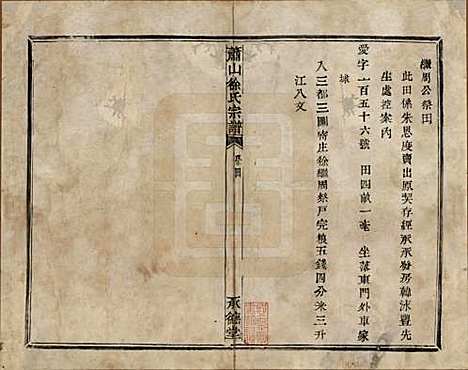 繼周公祭田
此田係朱恩慶賣出原契存經承承發房韓沐豐先
生處控案內
愛字一百五十六號 田四畝一毫 坐落東門外車家
埭
入三都三圖寄庄徐繼周祭戶完糧五錢四分米三升
江八文
蕭山徐氏宗譜
卷四
承德堂